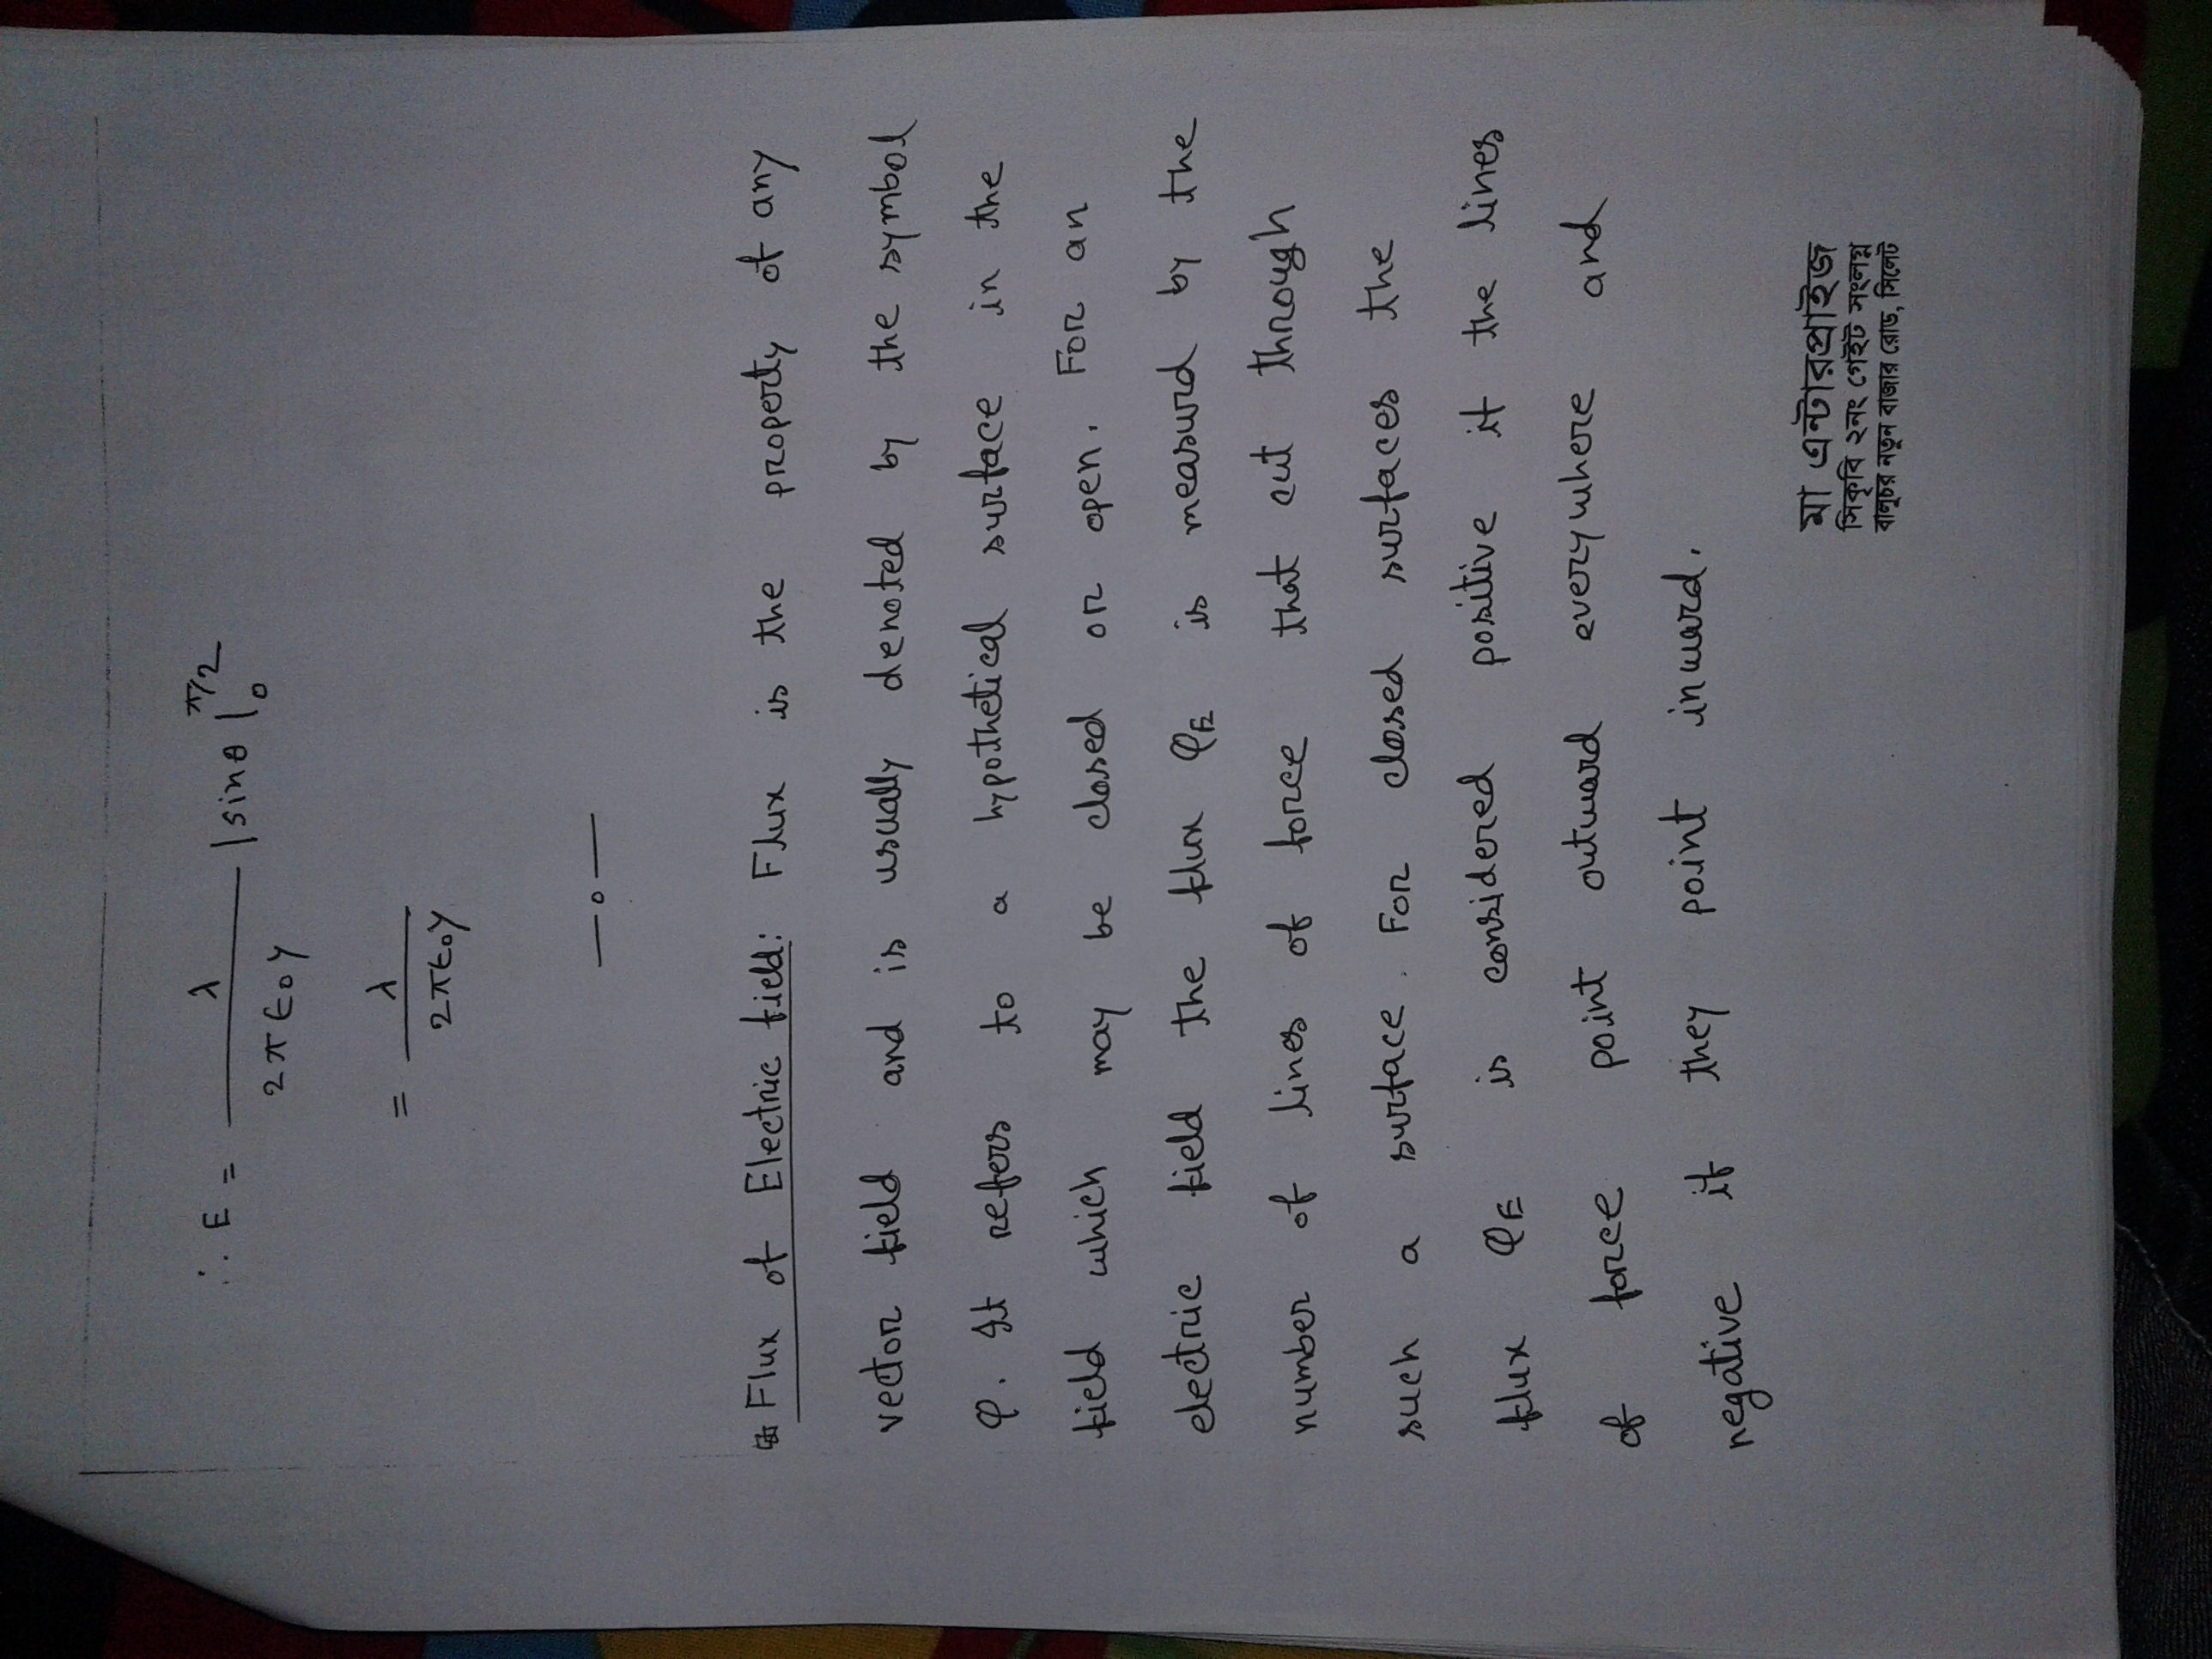 ∴ E = λ / 2π ϵ₀ y |sinθ|₀^π/2
= λ / 2πϵ₀y
—o—
Flux of Electric field: Flux is the property of any
vector field and is usually denoted by the symbol
φ. It refers to a hypothetical surface in the
field which may be closed or open. For an
electric field the flux φE is measurd by the
number of lines of force that cut through
such a surface. For closed surfaces the
flux φE is considered positive if the lines
of force point outward everywhere and
negative if they point inward.
মা এন্টারপ্রাইজ
সিকৃবি ২নং গেইট সংলগ্ন
বালুচর নতুন বাজার রোড, সিলেট